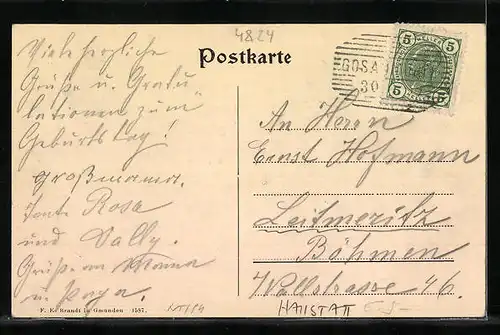 4824
Postkarte
Viele herzliche
Grüße u. Gratu
lationen zum
Geburtstag!
Großmama.
Tante Rosa
und Sally.
Grüße an Mama
u. Papa.
GOSA
30
5 5
5 5
An Herrn
Ernst Hofmann
Leitmeritz
Böhmen
Wallstrasse 46.
F. E. Brandt in Gmunden 1587.
HALLSTATT